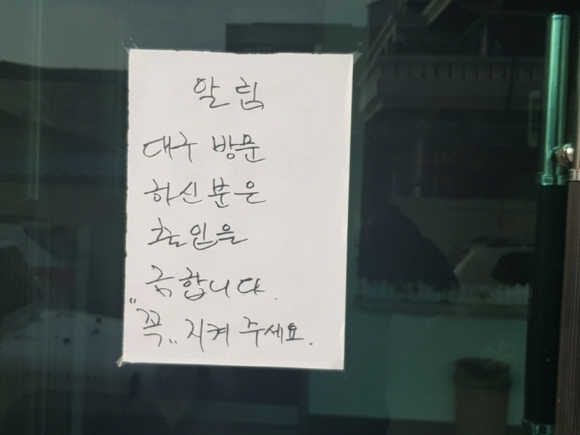 알림
대구 방문
하신분은
출입을
금합니다.
"꼭" 지켜 주세요.